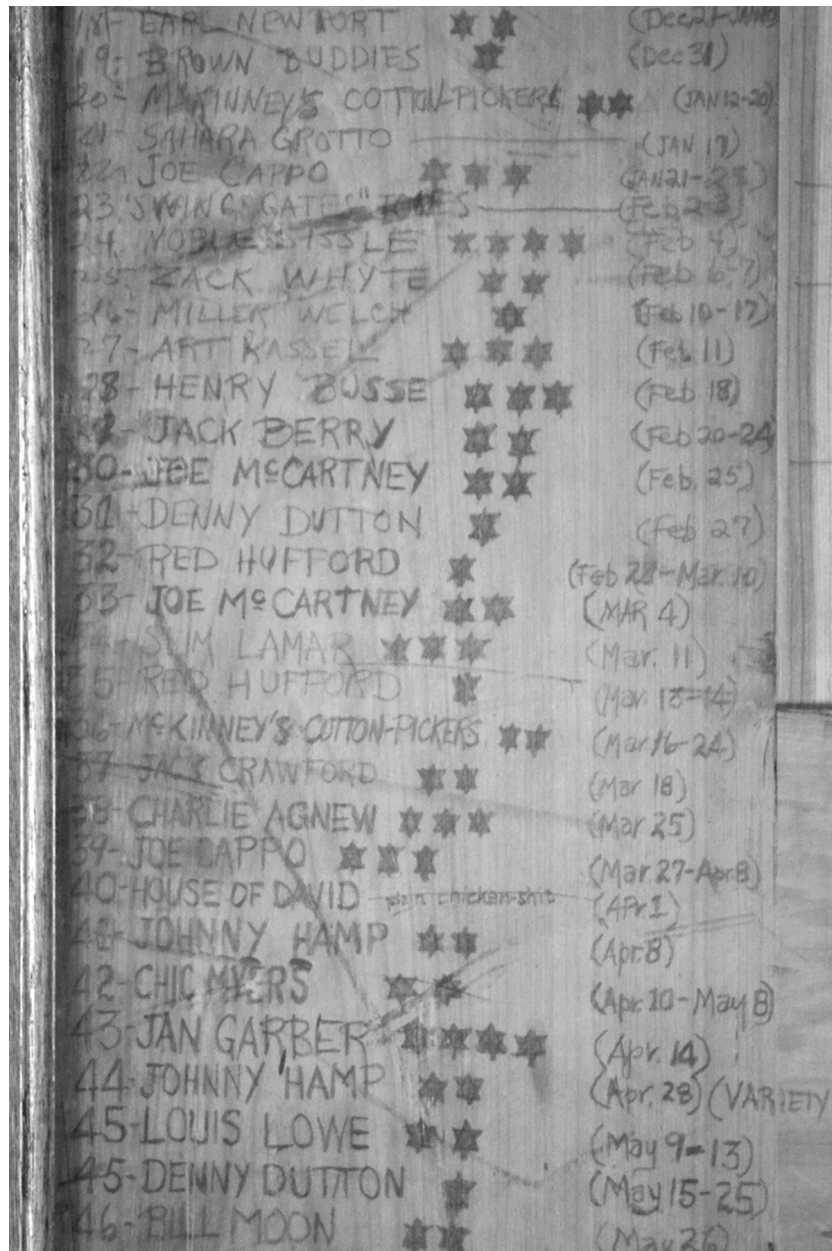 18- EARL NEWPORT ✶✶ (Dec 21-JAN10)
19- BROWN BUDDIES ✶ (Dec 31)
20- McKINNEY'S COTTON-PICKERS ✶✶ (JAN 12-20)
21- SAHARA GROTTO (JAN 17)
22- JOE CAPPO ✶✶✶ (JAN 21-28)
23 "SWING GATES" JONES (Feb 2-3)
24. NOBLE SISSLE ✶✶✶✶ (Feb 4)
25- ZACK WHYTE ✶✶ (Feb 6-7)
26- MILLER WELCH ✶ (Feb 10-17)
27- ART KASSEL ✶✶✶ (Feb 11)
28- HENRY BUSSE ✶✶✶ (Feb 18)
29- JACK BERRY ✶✶ (Feb 20-24)
30- JOE McCARTNEY ✶✶ (Feb. 25)
31- DENNY DUTTON ✶ (Feb 27)
32- RED HUFFORD ✶ (Feb 28-Mar. 10)
33- JOE McCARTNEY ✶✶ (MAR 4)
34- SLIM LAMAR ✶✶✶ (Mar. 11)
35- RED HUFFORD ✶ (Mar. 13-14)
36- McKINNEY'S COTTON-PICKERS ✶✶ (Mar 16-24)
37 JACK CRAWFORD ✶✶ (Mar 18)
38- CHARLIE AGNEW ✶✶✶ (Mar 25)
39- JOE CAPPO ✶✶✶ (Mar. 27-Apr 8)
40- HOUSE OF DAVID plain chicken-shit (APr 1)
41- JOHNNY HAMP ✶✶ (Apr 8)
42- CHIC MYERS ✶✶ (Apr. 10-May 8)
43- JAN GARBER ✶✶✶✶ (Apr. 14)
44- JOHNNY HAMP ✶✶ (Apr. 28) (VARIETY
45- LOUIS LOWE ✶✶ (May 9-13)
45- DENNY DUTTON ✶ (May 15-25)
46- BILL MOON ✶✶ (May 26)